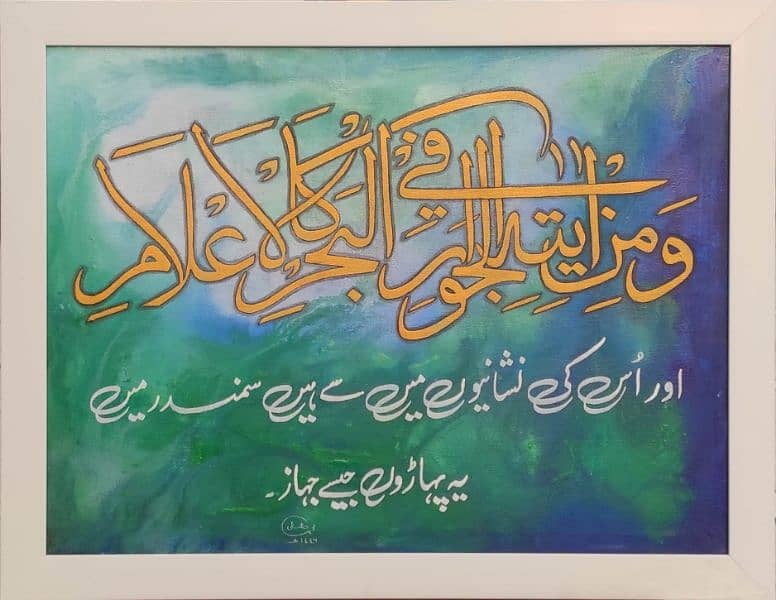 وَمِنْ اٰيٰتِهِ الْجَوَارِ فِي الْبَحْرِ كَالْاَعْلَامِ
اور اُس کی نشانیوں میں سے ہیں سمندر میں
یہ پہاڑوں جیسے جہاز۔
۱۴۴۶ھ